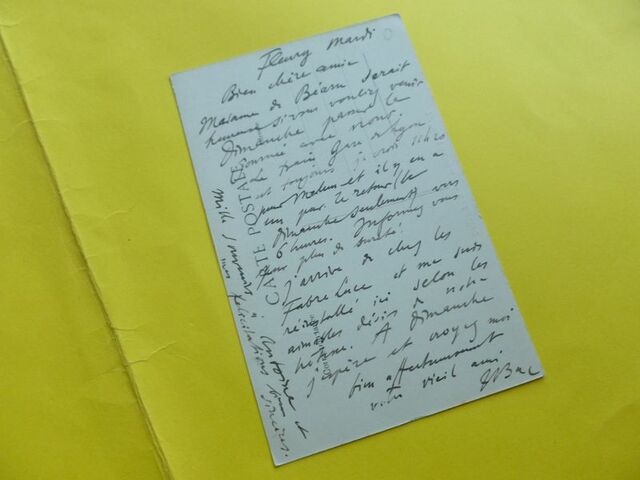 Fleury Mardi
Bien chère amie
Madame de Béarn serait
heureuse si vous vouliez venir
Dimanche passer la
journée avec nous.
Le train Gare de Lyon
est toujours je crois
pour Melun et il y en a
un pour le retour (le
dimanche seulement) vers
6 heures. Informez vous
pour plus de sureté!
J'arrive de chez les
Fabre Luce et me suis
réinstallé ici selon les
aimables désirs de notre
hôtesse. A dimanche
j'espère et croyez moi
bien affectueusement
votre vieil ami
Bac
Mille souvenirs à Antoine et
mes félicitations bien sincères.
CARTE POSTALE